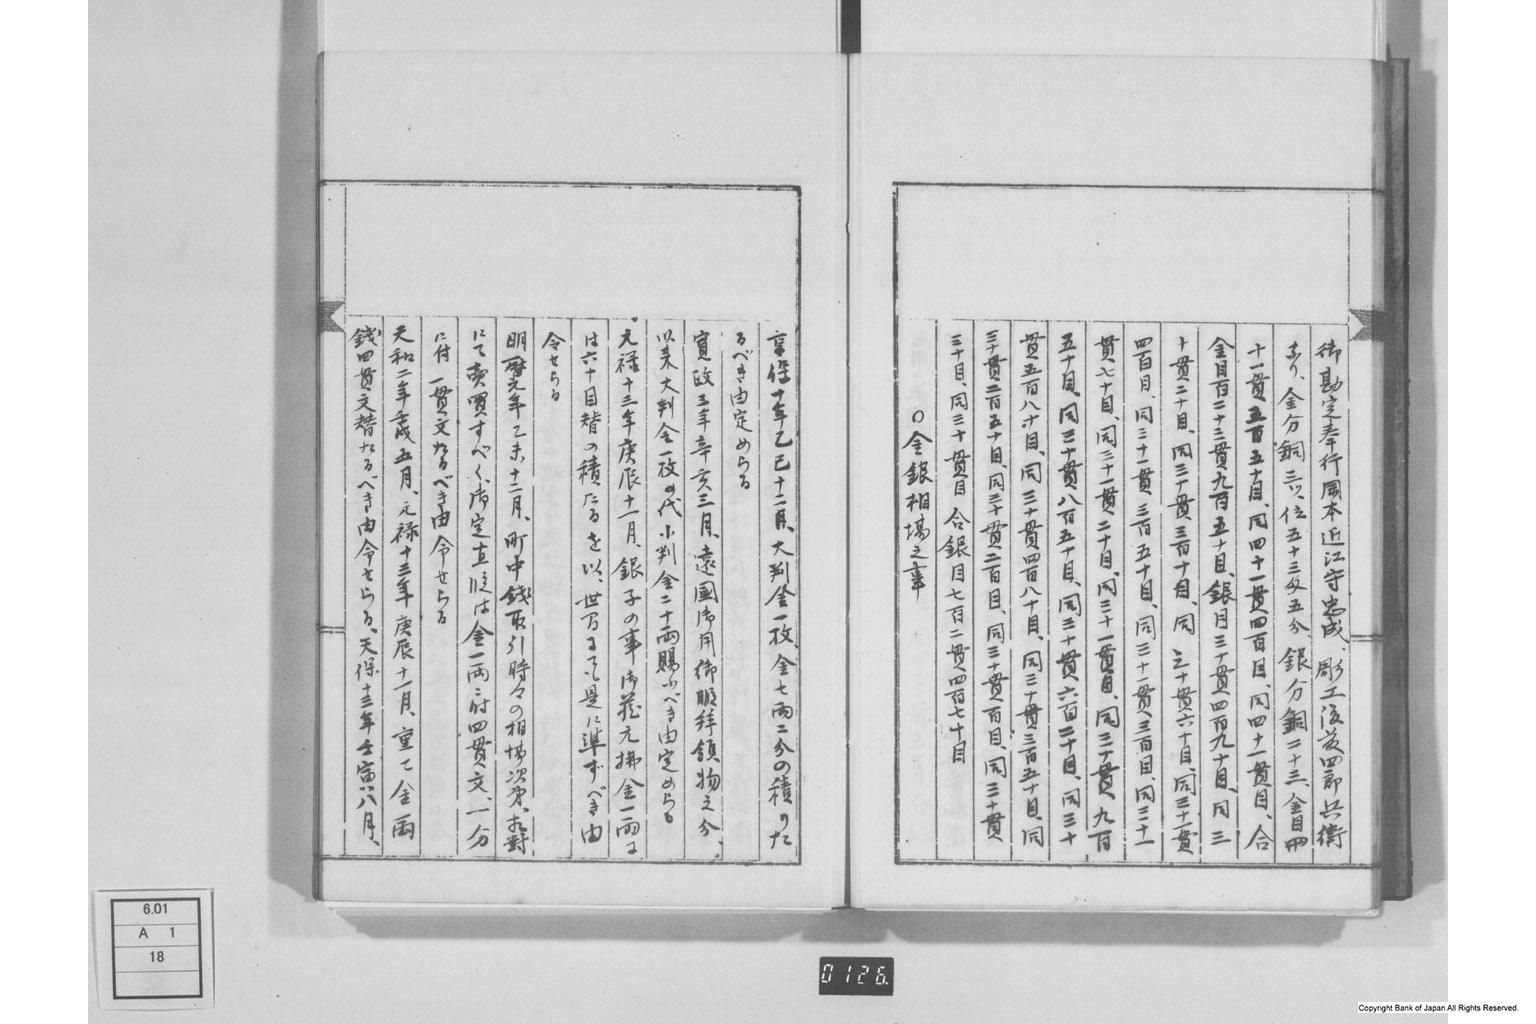 御勘定奉行岡本近江守忠成、彫工後藤四郎兵衛
あり、金分銅三以、位五十三匁五分、銀分銅二十三、金目四
十一貫五百五十目、同四十一貫四百目、同四十一貫目、合
金目百二十三貫九百五十目、銀目三十貫四百九十目、同三
十貫二十目、同三十貫三百十目、同三十貫六十目、同三十一貫
四百目、同三十一貫三百五十目、同三十一貫三百目、同三十一
貫八十目、同三十一貫二十目、同三十一貫目、同三十貫九百
五十目、同三十貫八百五十目、同三十貫六百二十目、同三十
貫五百八十目、同三十貫四百八十目、同三十貫三百五十目、同
三十貫二百五十目、同三十貫二百目、同三十貫百目、同三十貫
三十目、同三十貫目 合銀目七百二貫四百七十目
○金銀相場之事
享保十年乙巳十二月、大判金一枚、金七両二分の積りた
るべき由定めらる
寛政三年辛亥三月、遠国御用御暇拝領物之分、
以来大判金一枚の代小判金二十両賜ふべき由定めらる
元禄十三年庚辰十一月、銀子の事御蔵元払金一両に
は六十目替の積たるを以、世間にても是に準ずべき由
令せらる
明暦元年乙未十二月、町中銭取引時々の相場次第、相対
にて売買すべく、御定直段は金一両ニ付四貫文、一分
に付一貫文たるべき由令せらる
天和二年壬戌五月、元禄十三年庚辰十一月、重て金一両
銭四貫文替たるべき由令せらる、天保十三年壬寅八月、
6.01
A 1
18
0126.
Copyright Bank of Japan All Rights Reserved.